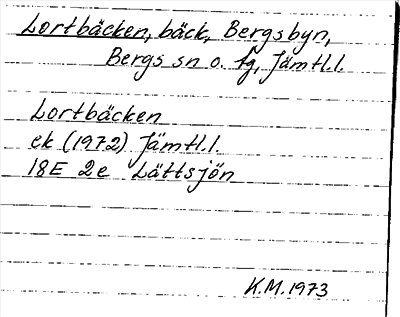 Lortbäcken, bäck, Bergsbyn,
Bergs sn o. tg, Jämtl.l.
Lortbäcken
ek (1972) Jämtl.l.
18E 2e Lättsjön
K.M. 1973